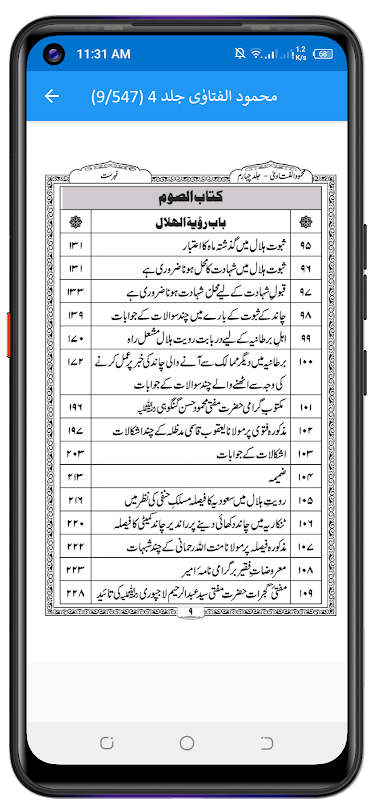 11:31 AM
1.2
K/s
68
محمود الفتاوٰی جلد 4 (9/547)
محمود الفتاویٰ - جلد چہارم
فہرست
کتاب الصوم
باب رؤیة الهلال
۹۵ ثبوت ہلال میں گذشتہ ماہ کا اعتبار ۱۳۱
۹۶ ثبوت ہلال میں شہادت کا محل ہونا ضروری ہے ۱۳۱
۹۷ قبول شہادت کے لیے محل شہادت ہونا ضروری ہے ۱۳۳
۹۸ چاند کے ثبوت کے بارے میں چند سوالات کے جوابات ۱۳۹
۹۹ اہل برطانیہ کے لیے در بابت رویت ہلال مشعل راہ ۱۷۰
۱۰۰ برطانیہ میں دیگر ممالک سے آنے والی چاند کی خبر پر عمل کرنے ۱۷۲
کی وجہ سے اٹھنے والے چند سوالات کے جوابات
۱۰۱ مکتوب گرامی حضرت مفتی محمود حسن گنگوہی رحمۃ اللہ علیہ ۱۹۶
۱۰۲ مذکورہ فتوی پر مولانا یعقوب قاسمی مدظلہ کے چند اشکالات ۱۹۷
۱۰۳ اشکالات کے جوابات ۲۰۳
۱۰۴ ضمیمہ ۲۱۳
۱۰۵ رویت ہلال میں سعودیہ کا فیصلہ مسلک حنفی کی نظر میں ۲۱۶
۱۰۶ ٹنکاریہ میں چاند دکھائی دینے پر راندیر چاند کمیٹی کا فیصلہ ۲۲۰
۱۰۷ مذکورہ فیصلہ پر مولانا منت اللہ رحمانی کے چند شبہات ۲۲۲
۱۰۸ معروضات فقیر بر گرامی نامۂ امیر ۲۲۳
۱۰۹ مفتیٔ گجرات حضرت مفتی سید عبدالرحیم لاجپوری رحمۃ اللہ علیہ کی تائید ۲۲۸
۹